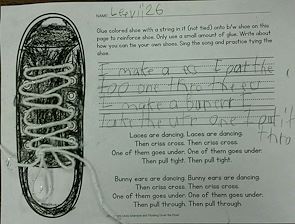 NAME: Leevi 26
Glue colored shoe with a string in it (not tied) onto b/w shoe on this
page to reinforce shoe. Only use a small amount of glue. Write about
how you can tie your own shoes. Sing the song and practice tying the
shoe.
I make a
one thro the
I make a
take the one I put it
thro
Laces are dancing. Laces are dancing.
Then criss cross. Then criss cross.
One of them goes under. One of them goes under.
Then pull tight. Then pull tight.
Bunny ears are dancing. Bunny ears are dancing.
Then criss cross. Then criss cross.
One of them goes under. One of them goes under.
Then pull through. Then pull through.